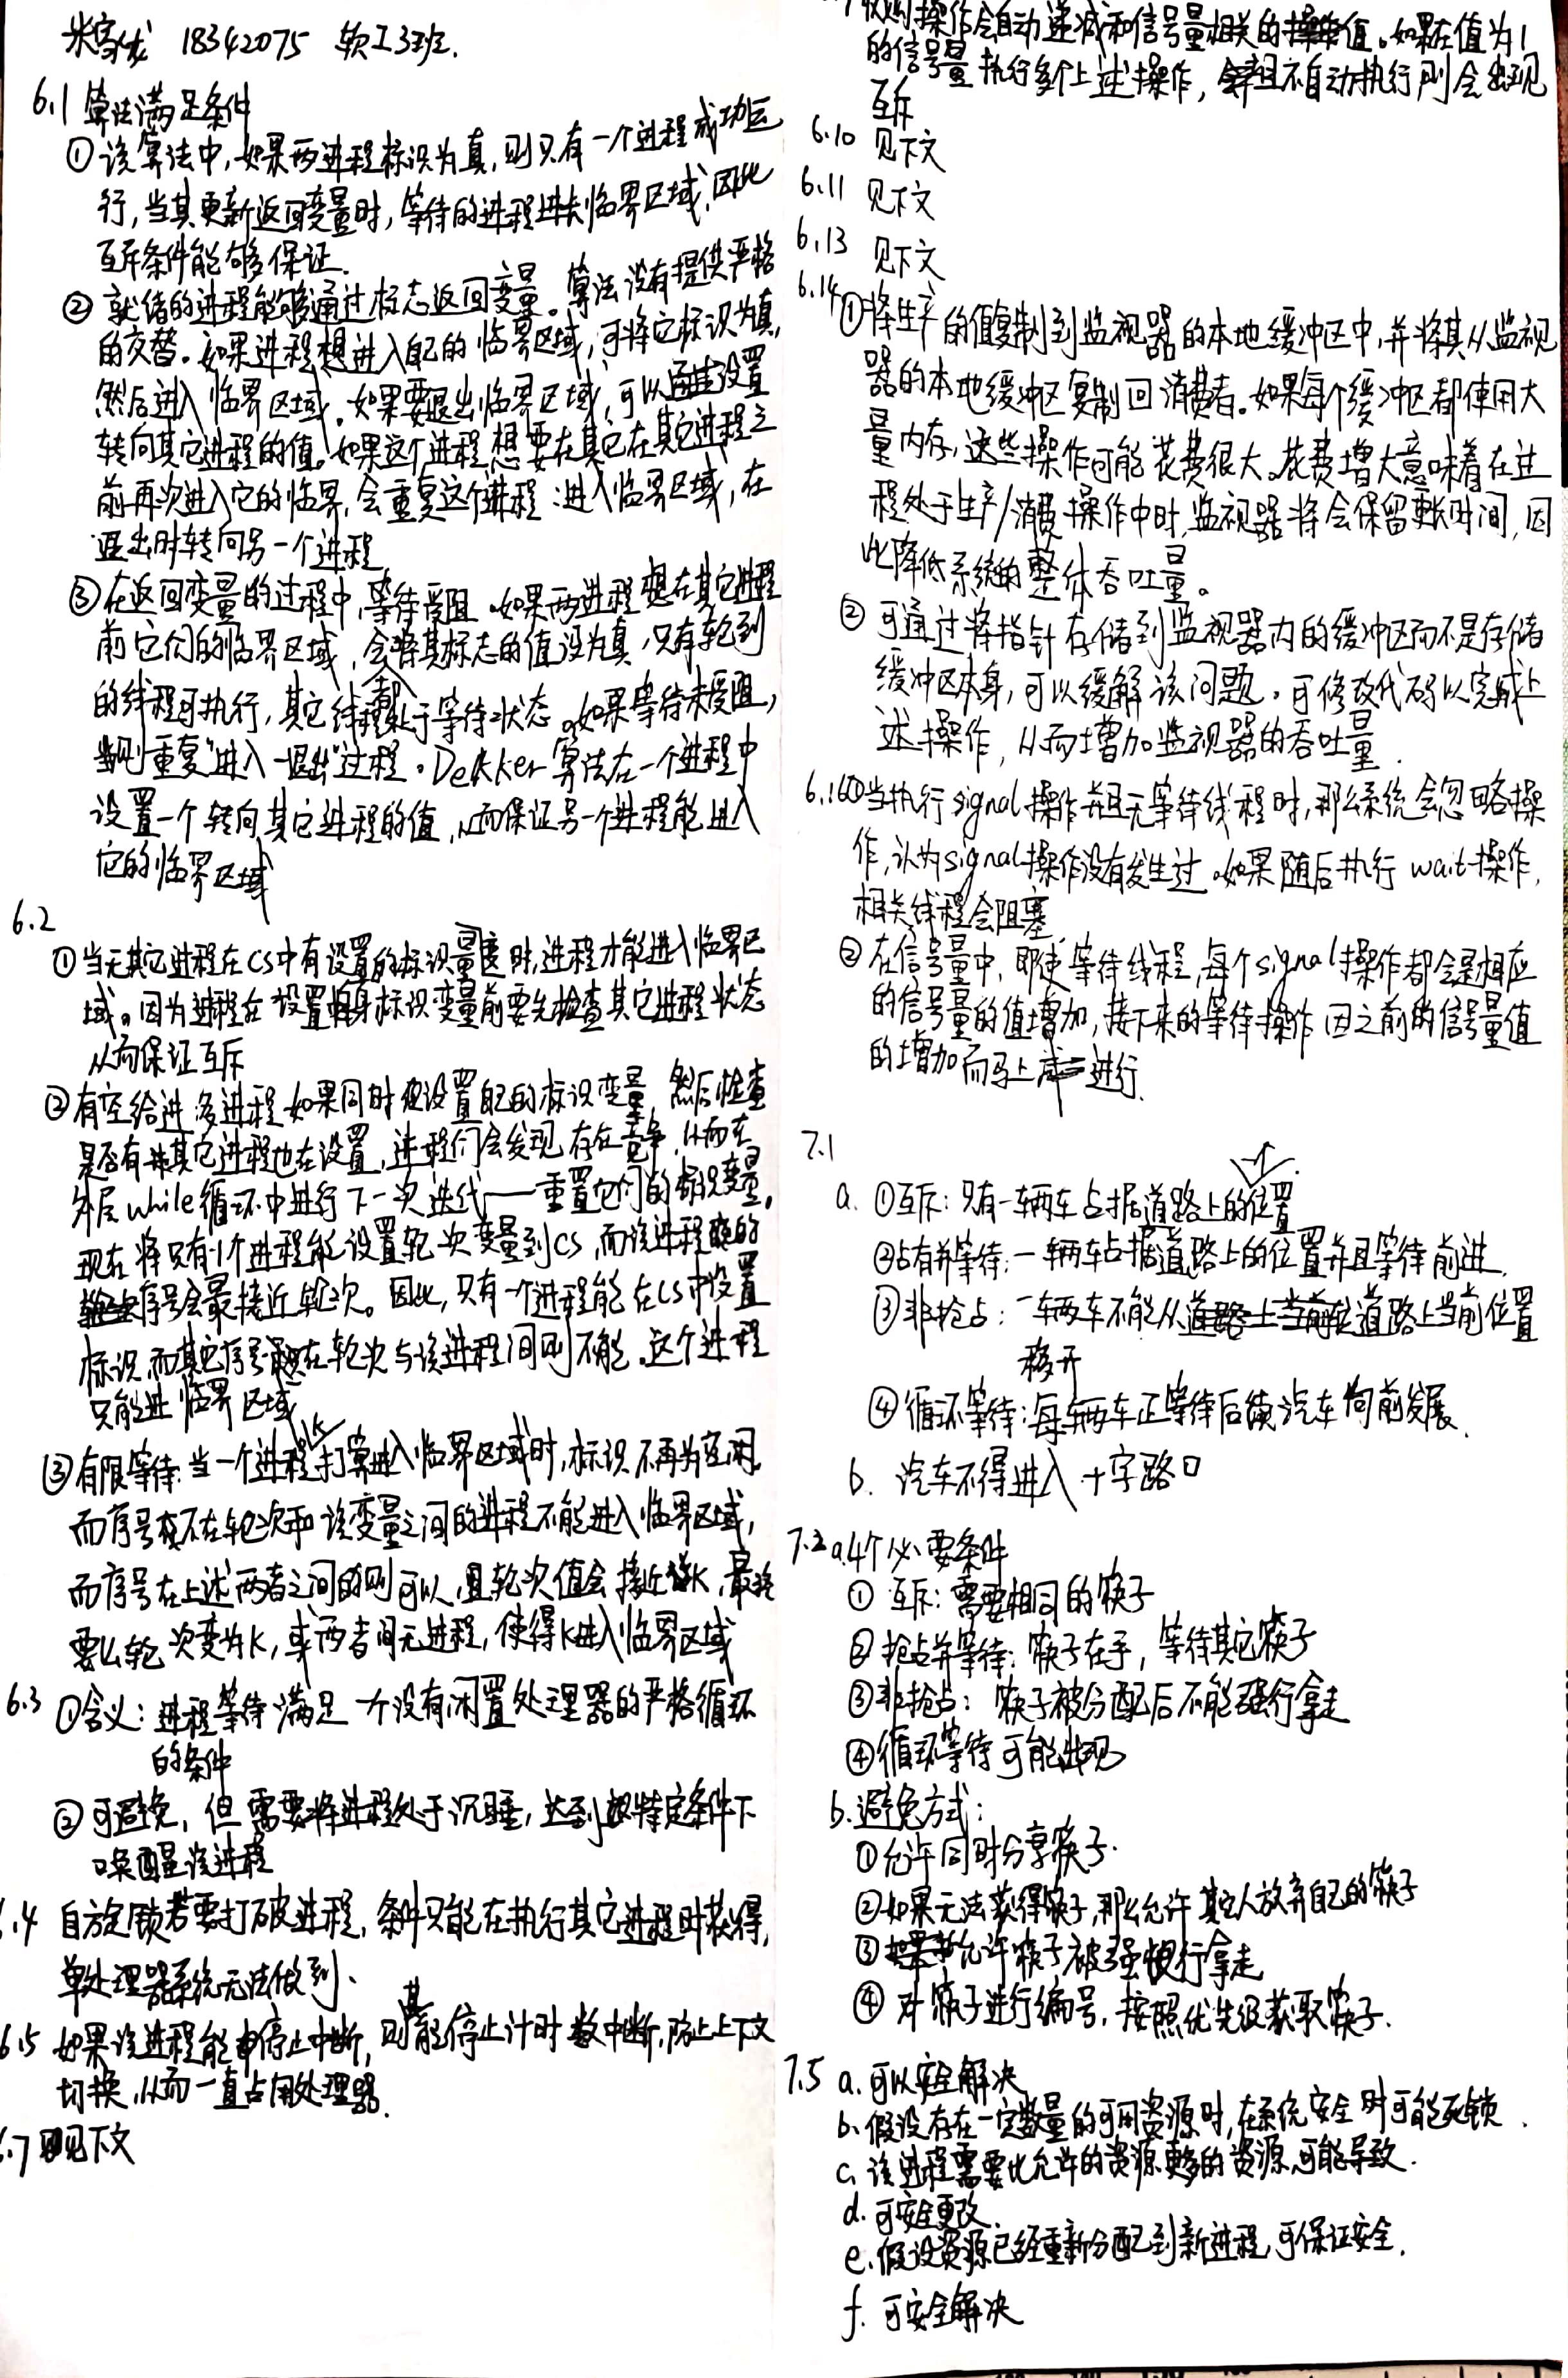 18342075 软工3班.
6.1 算法满足条件
① 该算法中,如果两进程标识为真,则只有一个进程成功运
行,当其更新返回变量时,等待的进程进去临界区域,因此
互斥条件能够保证.
② 就绪的进程能够通过标志返回变量。算法没有提供严格
的交替。如果进程想进入自己的临界区域,可将它标识为真,
然后进入临界区域。如果要退出临界区域,可以通过设置
转向其它进程的值。如果这个进程想要在其它在其它进程之
前再次进入它的临界,会重复这个进程:进入临界区域,在
退出时转向另一个进程
③ 在返回变量的过程中,等待受阻。如果两进程想在其它进程
前它们的临界区域,会将其标志的值设为真,只有轮到
的线程可执行,其它线程都处于等待状态。如果等待未受阻,
则重复"进入—退出"过程。Dekker算法在一个进程中
设置一个转向其它进程的值,从而保证另一个进程能进入
它的临界区域
6.2
① 当无其它进程在CS中有设置的标识量度时,进程才能进入临界区
域。因为进程在设置自身标识变量前要先检查其它进程状态
从而保证互斥
② 有空给进 多进程如果同时设置自己的标识变量,然后检查
是否有其它进程也在设置,进程们会发现存在竞争,从而在
外层while循环中进行下一次迭代——重置它们的标识变量。
现在将只有1个进程能设置轮次变量到CS,而该进程的
序号会最接近轮次。因此,只有一个进程能在CS中设置
标识,而其它序号在轮次与该进程间则不能。这个进程
只能进临界区域
③ 有限等待:当一个进程k打算进入临界区域时,标识不再为空闲,
而序号不在轮次和该变量之间的进程不能进入临界区域,
而序号在上述两者之间的则可以,且轮次值会接近k,最终
要么轮次变为K,或两者间无进程,使得k进入临界区域
6.3 ① 含义:进程等待满足一个没有闲置处理器的严格循环
的条件
② 可避免,但需要将进程处于沉睡,达到特定条件下
唤醒该进程
6.4 自旋锁若要打破进程,条件只能在执行其它进程时获得,
单处理器系统无法做到.
6.5 如果该进程能停止中断,则其能停止计时中断,防止上下文
切换,从而一直占用处理器.
6.7 见下文
操作会自动递减和信号量相关的值。如果在值为1
的信号量执行多个上述操作,并且不自动执行则会出现
互斥
6.10 见下文
6.11 见下文
6.13 见下文
6.14 ① 将生产的值复制到监视器的本地缓冲区中,并将其从监视
器的本地缓冲区复制回消费者。如果每个缓冲区都使用大
量内存,这些操作可能花费很大。花费增大意味着在过
程处于生产/消费操作中时,监视器将会保留更长时间,因
此降低系统的整体吞吐量。
② 可通过将指针存储到监视器内的缓冲区而不是存储
缓冲区本身,可以缓解该问题。可修改代码以完成上
述操作,从而增加监视器的吞吐量.
6.16 ① 当执行signal操作并且无等待线程时,那么系统会忽略操
作,认为signal操作没有发生过。如果随后执行wait操作,
相关线程会阻塞
② 在信号量中,即使等待线程,每个signal操作都会是相应
的信号量的值增加,接下来的等待操作因之前的信号量值
的增加而马上进行.
7.1
a. ①互斥:只有一辆车占据道路上的位置
②占有并等待:一辆车占据道路上的位置并且等待前进.
③非抢占:一辆车不能从道路上当前位置
移开
④循环等待:每辆车正等待后续汽车向前发展.
b. 汽车不得进入十字路口
7.2 a.4个必要条件
① 互斥:需要相同的筷子
② 抢占并等待:筷子在手,等待其它筷子
③ 非抢占:筷子被分配后不能强行拿走
④ 循环等待可能出现
b.避免方式:
① 允许同时分享筷子.
② 如果无法获得筷子,那么允许其他人放弃自己的筷子
③ 允许筷子被强行拿走
④ 对筷子进行编号,按照优先级获取筷子.
7.5 a. 可以安全解决
b. 假设存在一定数量的可用资源时,在系统安全时可能死锁.
c. 该进程需要比允许的资源更多的资源,可能导致.
d. 可安全更改.
e. 假设资源已经重新分配到新进程,可保证安全.
f. 可安全解决